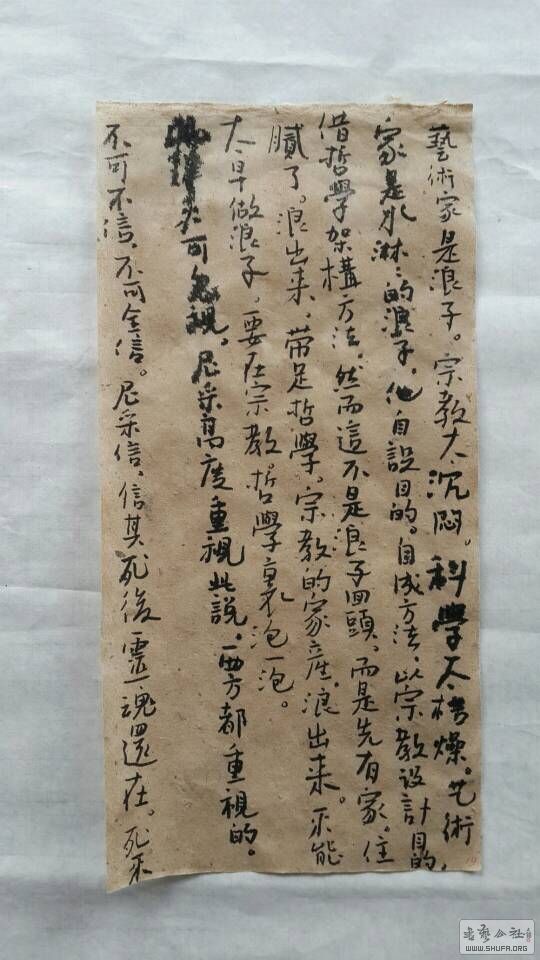 藝術家是浪子。宗教太沉悶。科學太枯燥。艺術
家是水淋〻的浪子。他自設目的。自成方法。以宗教設計目的,
借哲學架構方法。然而這不是浪子回頭,而是先有家。住
膩了。浪出來,带足哲學。宗教的家産,浪出来。不能
太早做浪子,要在宗教哲學裏泡一泡。
不可忽視。尼采高度重視此説。西方都重視的。
不可不信,不可全信。尼采信,信其死後靈魂還在。死不
書藝公社
WWW.SHUFA.ORG